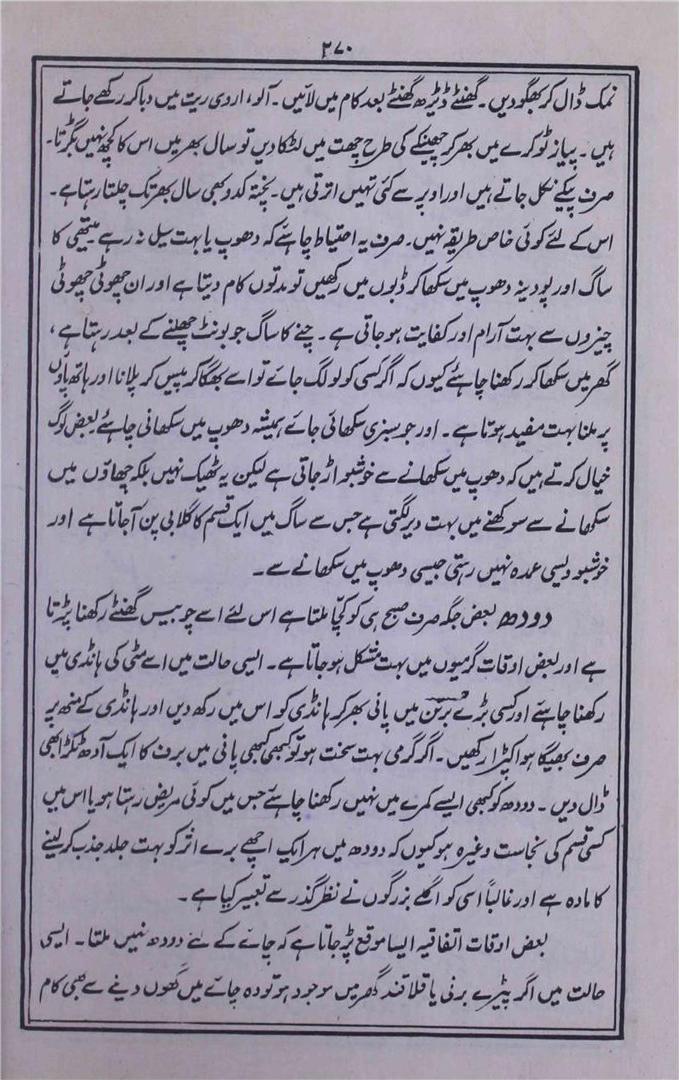 ۲۷۰
نمک ڈال کر بھگو دیں۔ گھنٹے ڈیڑھ گھنٹے بعد کام میں لائیں۔ آلو، اروی ریت میں دبا کر رکھے جاتے
ہیں۔ پیاز ٹوکرے میں بھر کر چھینکے کی طرح چھت میں لٹکا دیں تو سال بھر میں اس کا کچھ نہیں بگڑتا۔
صرف پیکے نکل جاتے ہیں اور اوپر سے کئی تہیں اترتی ہیں۔ پختہ کدو بھی سال بھر تک چلتا رہتا ہے۔
اس کے لئے کوئی خاص طریقہ نہیں۔ صرف یہ احتیاط چاہئے کہ دھوپ یا بہت سیل نہ رہے میتھی کا
ساگ اور پودینہ دھوپ میں سکھا کر ڈبوں میں رکھیں تو مدتوں کام دیتا ہے اور ان چھوٹی چھوٹی
چیزوں سے بہت آرام اور کفایت ہو جاتی ہے۔ چنے کا ساگ جو بونٹ چھلنے کے بعد رہتا ہے،
گھر میں سکھا کر رکھنا چاہئے کیوں کہ اگر کسی کو لو لگ جائے تو اسے بھگا کر پیس کر پلانا اور ہاتھ پاؤں
پر ملنا بہت مفید ہوتا ہے۔ اور جو سبزی سکھائی جائے ہمیشہ دھوپ میں سکھانی چاہئے بعض لوگ
خیال کرتے ہیں کہ دھوپ میں سکھانے سے خوشبو اڑ جاتی ہے لیکن یہ ٹھیک نہیں بلکہ چھاؤں میں
سکھانے سے سوکھنے میں بہت دیر لگتی ہے جس سے ساگ میں ایک قسم کا گلابی پن آ جاتا ہے اور
خوشبو ویسی عمدہ نہیں رہتی جیسی دھوپ میں سکھانے سے۔
دودھ بعض جگہ صرف صبح ہی کو کچا ملتا ہے اس لئے اسے چوبیس گھنٹے رکھنا پڑتا
ہے اور بعض اوقات گرمیوں میں بہت مشکل ہو جاتا ہے۔ ایسی حالت میں اسے مٹی کی ہانڈی میں
رکھنا چاہئے اور کسی بڑے برتن میں پانی بھر کر ہانڈی کو اس میں رکھ دیں اور ہانڈی کے منھ پر
صرف بھیگا ہوا کپڑا رکھیں۔ اگر گرمی بہت سخت ہو تو کبھی کبھی پانی میں برف کا ایک آدھ ٹکڑا بھی
ڈال دیں۔ دودھ کو کبھی ایسے کمرے میں نہیں رکھنا چاہئے جس میں کوئی مریض رہتا ہو یا اس میں
کسی قسم کی نجاست وغیرہ ہو کیوں کہ دودھ میں ہر ایک اچھے برے اثر کو بہت جلد جذب کر لینے
کا مادہ ہے اور غالباً اسی کو اگلے بزرگوں نے نظر گذر سے تعبیر کیا ہے۔
بعض اوقات اتفاقیہ ایسا موقع پڑ جاتا ہے کہ چائے کے لئے دودھ نہیں ملتا۔ ایسی
حالت میں اگر پیڑے برفی یا قلاقند گھر میں موجود ہو تو وہ چائے میں گھول دینے سے بھی کام